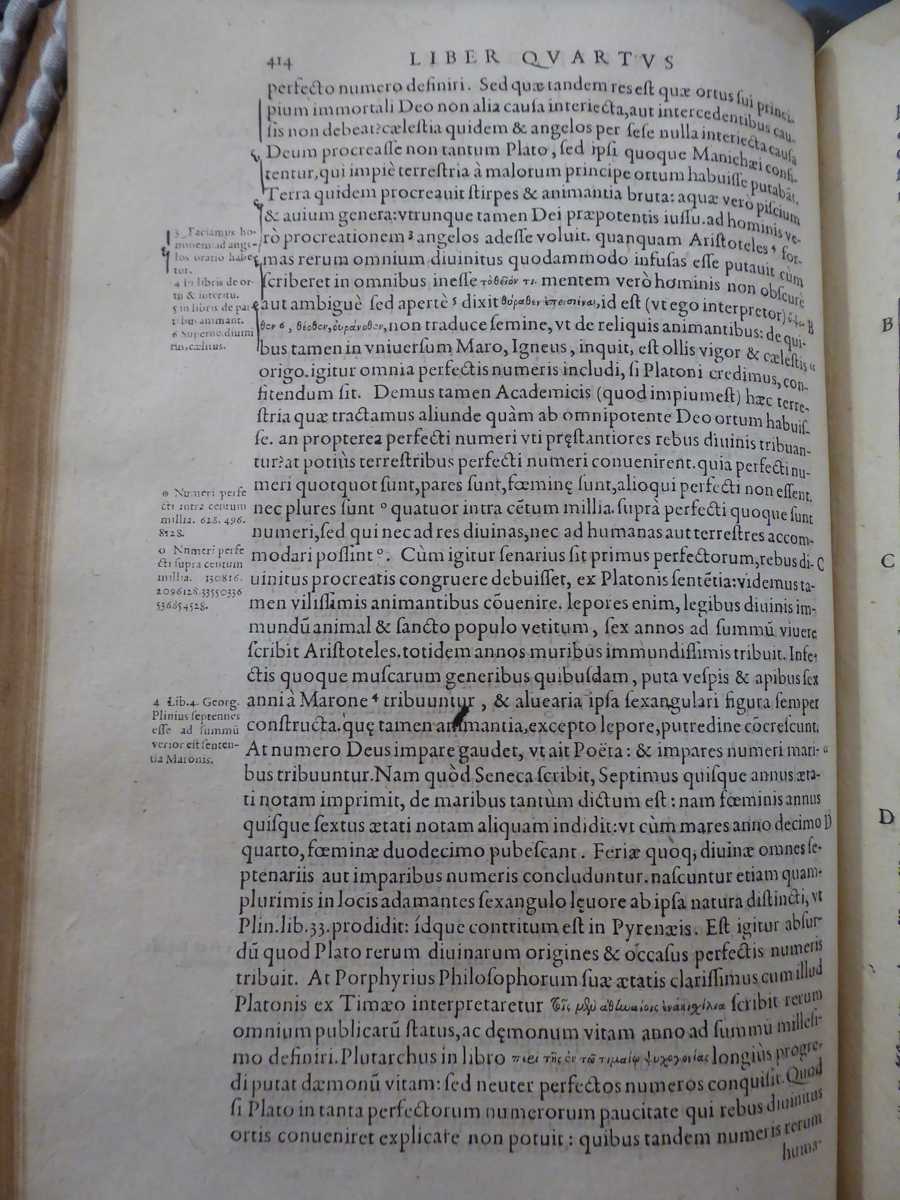 414 LIBER QVARTVS
perfecto numero definiri. Sed quæ tandem res est quæ ortus sui princi-
pium immortali Deo non alia causa interiecta, aut intercedentibus cau-
sis non debeat? cælestia quidem & angelos per sese nulla interiecta causa
Deum procreasse non tantum Plato, sed ipsi quoque Manichæi confi-
tentur, qui impiè terrestria à malorum principe ortum habuisse putabāt.
Terra quidem procreauit stirpes & animantia bruta: aquæ verò piscium
& auium genera: vtrunque tamen Dei præpotentis iussu. ad hominis ve-
rò procreationem 3 angelos adesse voluit. quanquam Aristoteles 4 for-
mas rerum omnium diuinitus quodammodo infusas esse putauit cùm
scriberet in omnibus inesse τὸ θεῖόν τι. mentem verò hominis non obscurè
aut ambiguè sed apertè 5 dixit θύραθεν ἐπεισιέναι, id est (vt ego interpretor)
θεν 6, θεόθεν, οὐρανόθεν, non traduce semine, vt de reliquis animantibus: de qui-
bus tamen in vniuersum Maro, Igneus, inquit, est ollis vigor & cælestis “
origo. igitur omnia perfectis numeris includi, si Platoni credimus, con-
fitendum sit. Demus tamen Academicis (quod impium est) hæc terre-
stria quæ tractamus aliunde quàm ab omnipotente Deo ortum habuis-
se. an propterea perfecti numeri vti pręstantiores rebus diuinis tribuan-
tur? at potiùs terrestribus perfecti numeri conuenirent. quia perfecti nu-
meri quotquot sunt, pares sunt, fœminę sunt, alioqui perfecti non essent.
nec plures sunt o quatuor intra cētum millia. suprà perfecti quoque sunt
numeri, sed qui nec ad res diuinas, nec ad humanas aut terrestres accom-
modari possint o. Cùm igitur senarius sit primus perfectorum, rebus di-
uinitus procreatis congruere debuisset, ex Platonis sentētia: videmus ta-
men vilissimis animantibus cōuenire. lepores enim, legibus diuinis im-
mundū animal & sancto populo vetitum, sex annos ad summū viuere
scribit Aristoteles. totidem annos muribus immundissimis tribuit. Inse-
ctis quoque muscarum generibus quibusdam, puta vespis & apibus sex
anni à Marone 4 tribuuntur, & aluearia ipsa sexangulari figura semper
constructa. quę tamen animantia, excepto lepore, putredine cōcrescunt.
At numero Deus impare gaudet, vt ait Poëta: & impares numeri mari- “
bus tribuuntur. Nam quòd Seneca scribit, Septimus quisque annus æta-
ti notam imprimit, de maribus tantùm dictum est: nam fœminis annus
quisque sextus ætati notam aliquam indidit: vt cùm mares anno decimo
quarto, fœminæ duodecimo pubescant. Feriæ quoq; diuinæ omnes se-
ptenariis aut imparibus numeris concluduntur. nascuntur etiam quam-
plurimis in locis adamantes sexangulo lęuore ab ipsa natura distincti, vt
Plin. lib. 33. prodidit: ídque contritum est in Pyrenæis. Est igitur absur-
dū quod Plato rerum diuinarum origines & occasus perfectis numeris
tribuit. At Porphyrius Philosophorum suæ ætatis clarissimus cum illud
Platonis ex Timæo interpretaretur scribit rerum
omnium publicarū status, ac dęmonum vitam anno ad summū millesi-
mo definiri. Plutarchus in libro περὶ τῆς ἐν τῷ τιμαίῳ ψυχογονίας longiùs progre-
di putat dæmonū vitam: sed neuter perfectos numeros conquisit. Quod
si Plato in tanta perfectorum numerorum paucitate qui rebus diuinitus
ortis conueniret explicare non potuit: quibus tandem numeris rerum
huma-
3 Faciamus ho-
minem ad ange-
los oratio habe-
tur.
4 in libris de or-
tu & interitu.
5 in libris de par-
tibus animant.
6 Superne, diuini-
tus, cælitus.
o Numeri perfe
cti intra centum
millia. 6. 28. 496.
8128.
o Numeri perfe
cti supra centum
millia. 130816.
2096128. 33550336
536854528.
4 Lib. 4. Georg.
Plinius septennes
esse ad summū
verior est senten-
tia Maronis.
B
C
D
B
C
D